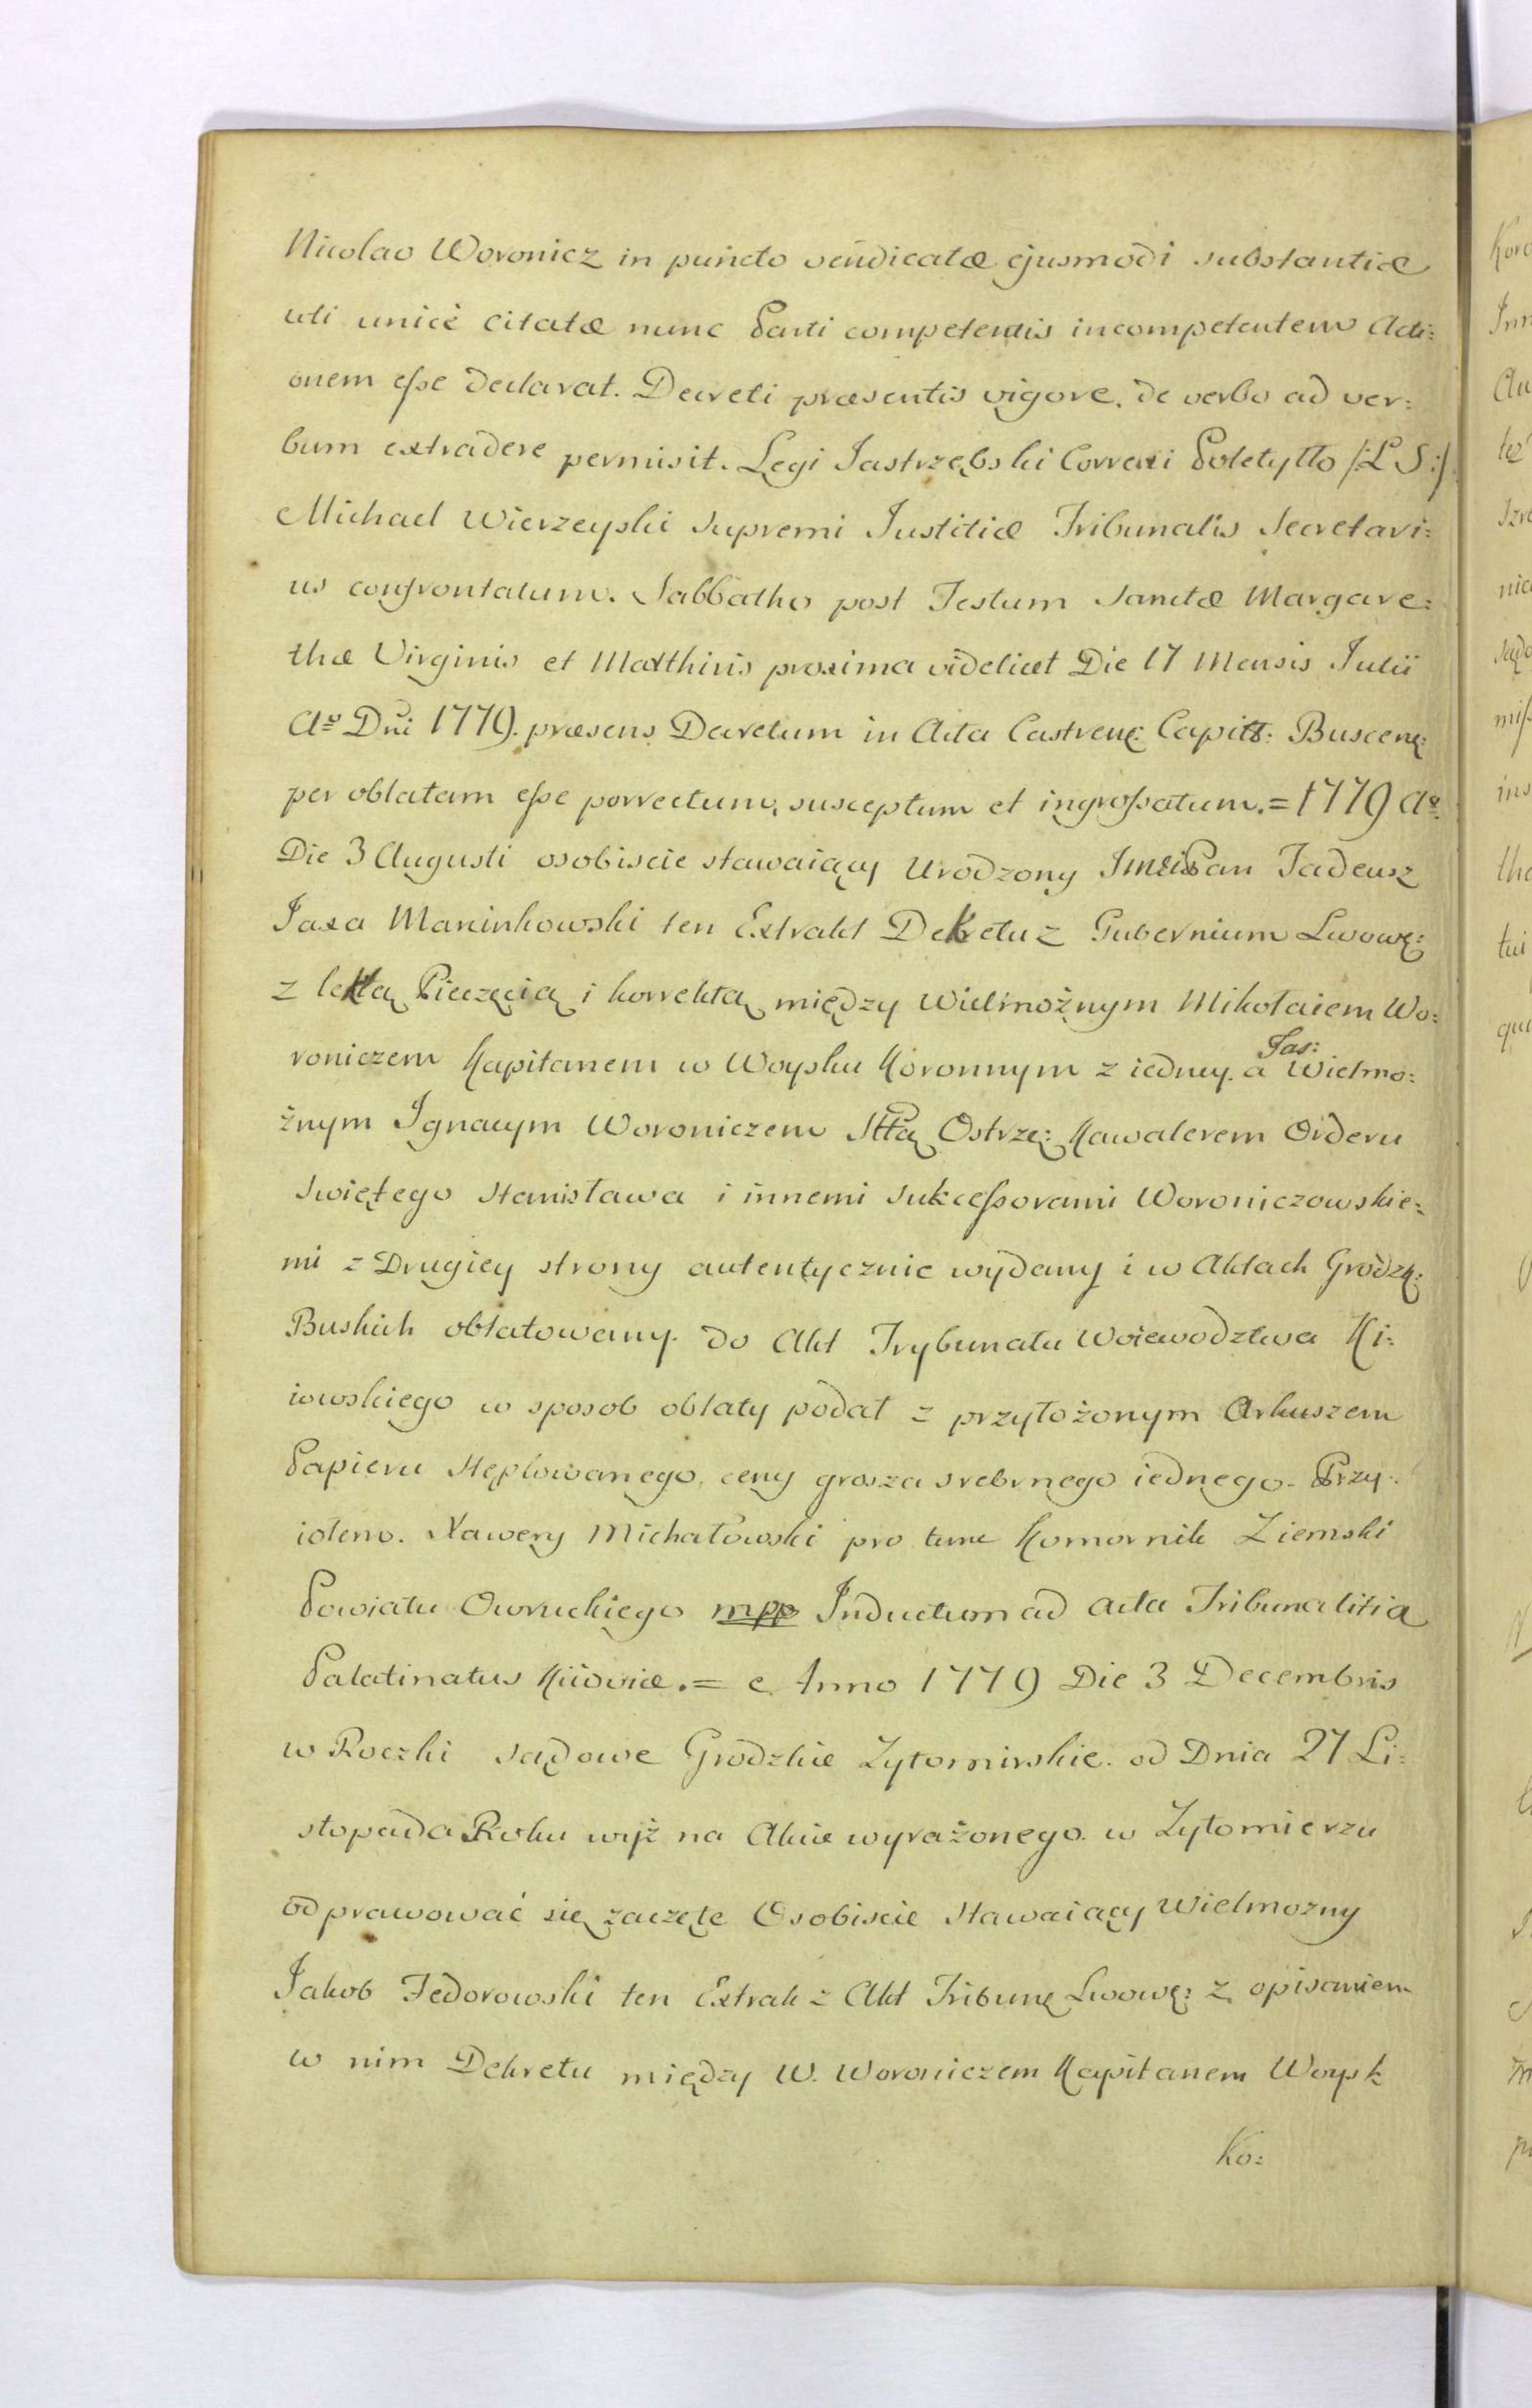 Nicolao Woronicz in puncto vendicatæ ejusmodi substantiæ
uti unicè citatæ nunc Parti competentis incompetentem Acti=
onem eſse declarat. Decreti præsentis vigore. de verbo ad ver=
bum extradere permisit. Legi Jastrzębski Correxi Poletyłło /:L S:/
Michael Wierzeyski Supremi Justitiæ Tribunalis Secretari=
us confrontatum. Sabbatho post Festum Sanctæ Margare=
thæ Virginis et Matthiris proxima videlicet Die 17 Mensis Julii
Aº Dni 1779. præsens Decretum in Acta Castrenę: Capitt: Buscenę:
per oblatam eſse porrectum, susceptum et ingroſsatum. = 1779 Aº.
Die 3 Augusti osobiscie stawaiący Urodzony Jmći Pan Tadeusz
Jaxa Marcinkowski ten Extrakt Dekretu z Gubernium Lwowę:
z lektą Pieczęcią i korrektą między Wielmożnym Mikołaiem Wo=
roniczem Kapitanem w Woysku Koronnym z iedney. a Jas: Wielmo=
żnym Ignacym Woroniczem Sttą Ostrzę: Kawalerem Orderu
Swiętego Stanisława i innemi Sukceſsorami Woroniczowskie=
mi z Drugiey strony autentycznie wydany i w Aktach Grodzk:
Buskich oblatowany. do Akt Trybunału Woiewodztwa Ki=
iowskiego w sposob oblaty podał z przyłożonym Arkuszem
Papieru Stęplowanego, ceny grosza srebrnego iednego. Przy=
iołem. Xawery Michałowski pro tunc Komornik Ziemski
Powiatu Owruckiego mpp Inductum ad Acta Tribunalitia
Palatinatus Kiioviæ. = Anno 1779 Die 3 Decembris
w Roczki Sądowe Grodzkie Zytomirskie. od Dnia 27 Li=
stopada Roku wyż na Akcie wyrażonego. w Zytomierzu
odprawować się zaczęte Osobiscie Stawaiący Wielmozny
Jakob Fedorowski ten Extrak z Akt Tribunę Lwowę: z opisaniem
w nim Dekretu między W. Woroniczem Kapitanem Woysk
Ko=